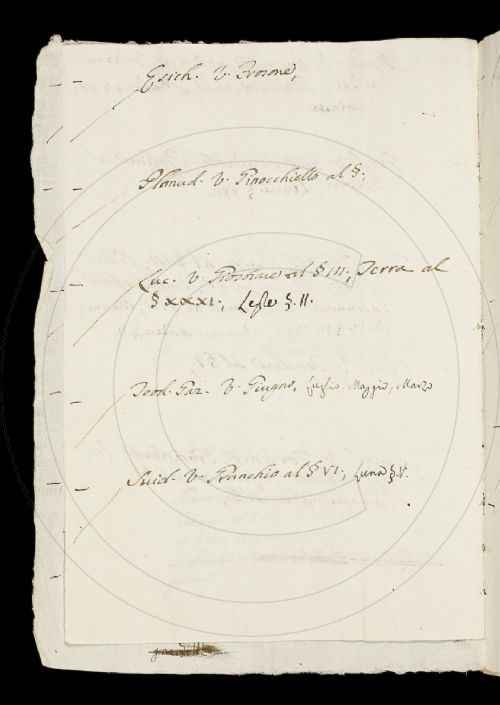 Esich. V. Frosone,
Planud. V. Pinocchietto al §.
Luc. V. al § III, Terra al
§ XXXI, Leste §. II.
Teod. Gaz. V. Giugno, Luglio, Maggio, Marzo
Suid. V. Granchio al § VI, Luna § V.